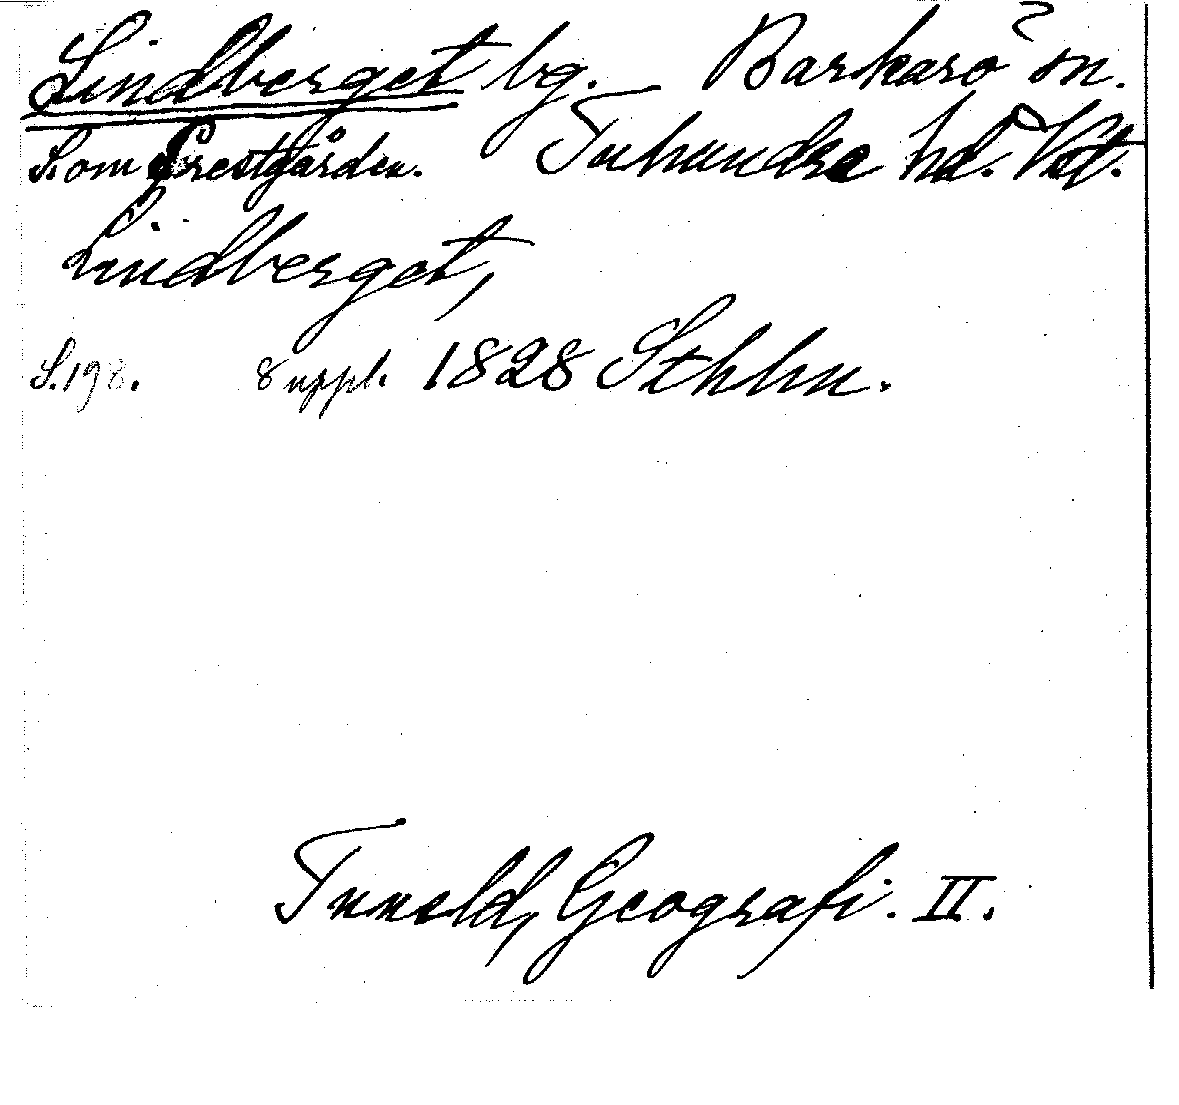 Lindberget bg. Barkarö sn.
S. om Prestgården. Tuhundra hd. Vst.
Lindberget,
S. 198. 8 uppl. 1828 Sthlm.
Tuneld, Geografi. II.